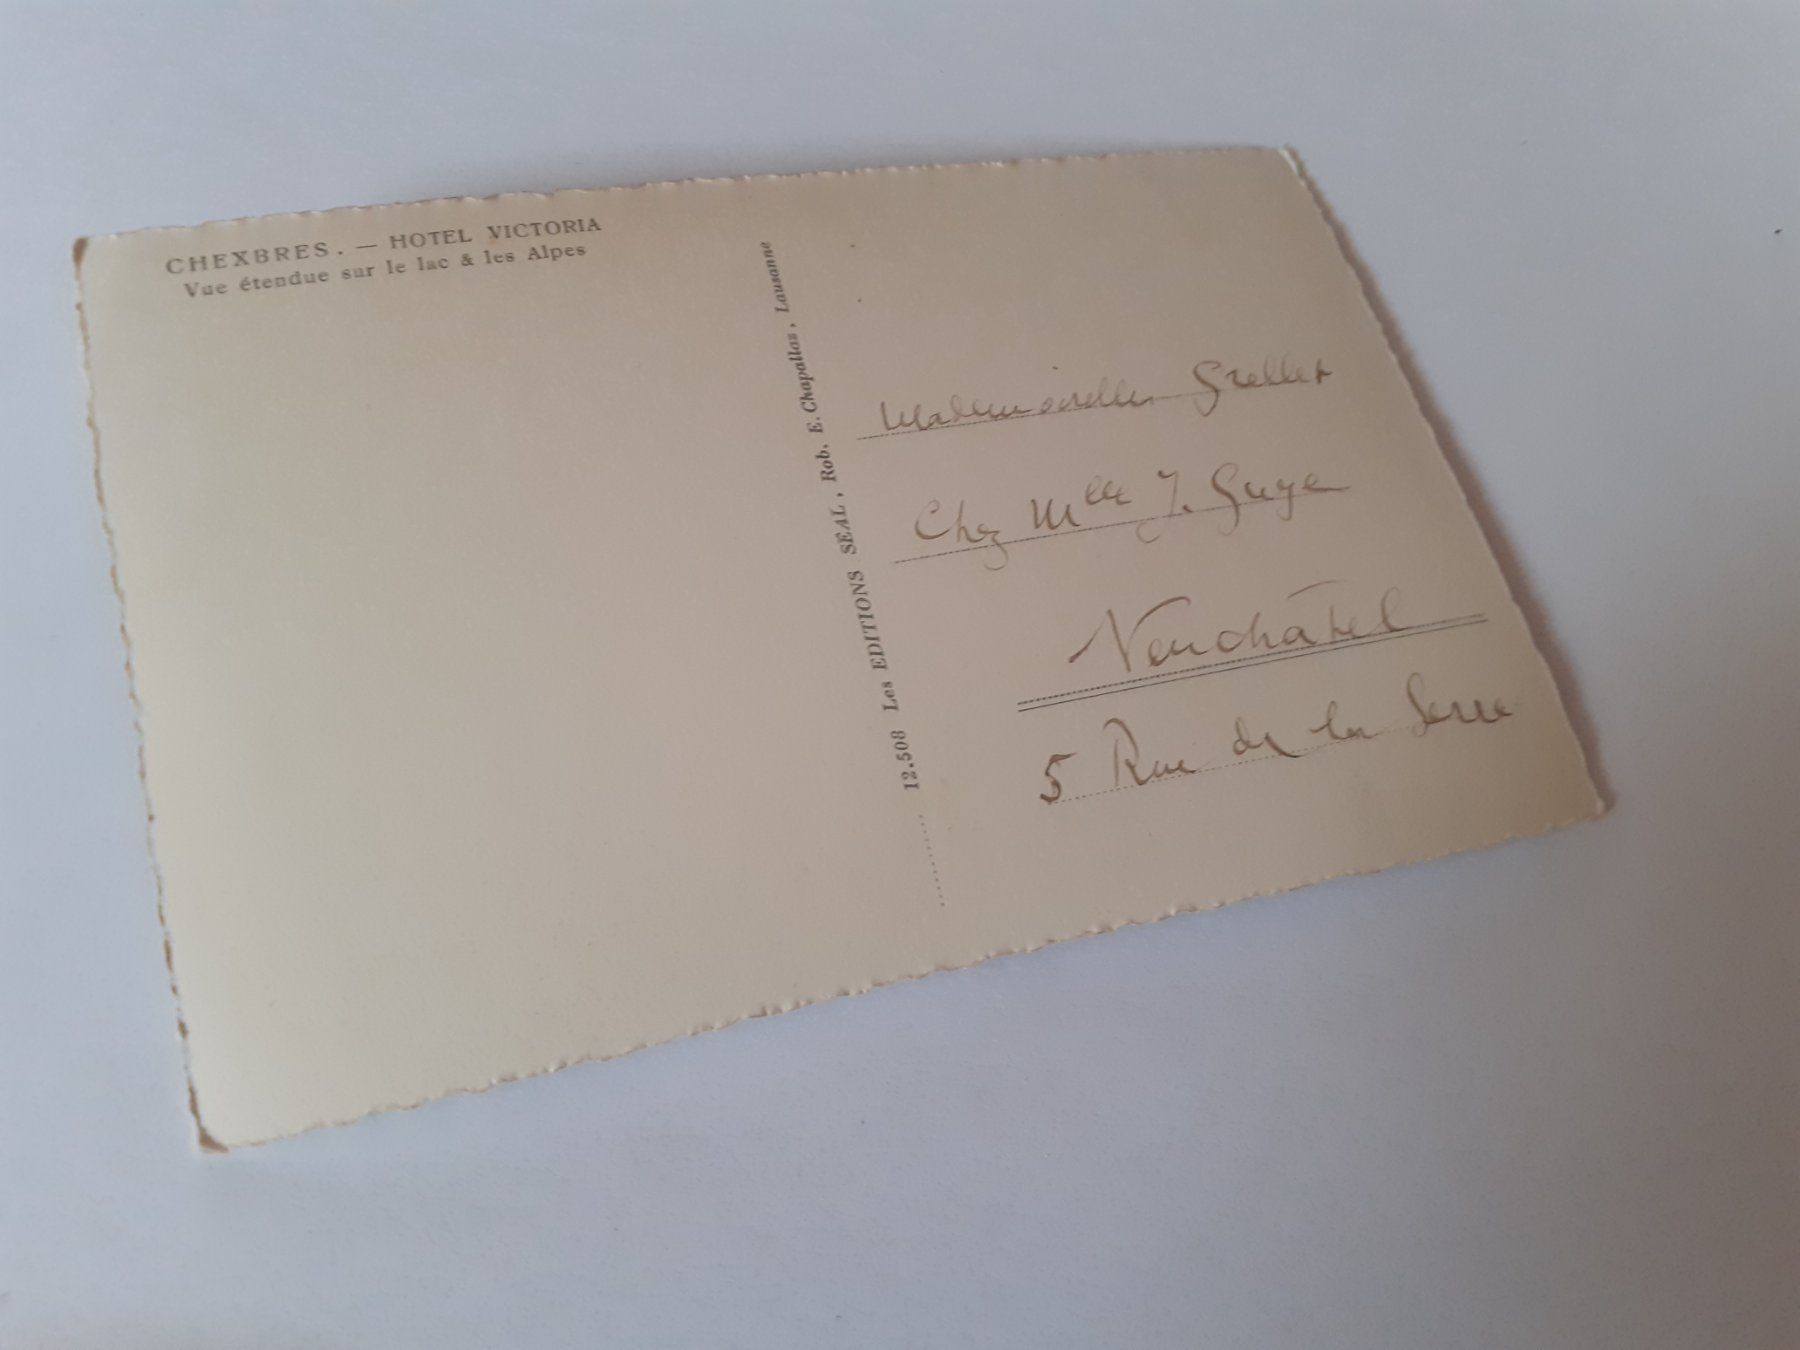 CHEXBRES. — HOTEL VICTORIA
Vue étendue sur le lac & les Alpes
12.508 Les EDITIONS SEAL, Rob. E. Chapallaz, Lausanne
Mademoiselle Grellet
Chez Mlle J. Guye
Neuchâtel
5 Rue de la Serre